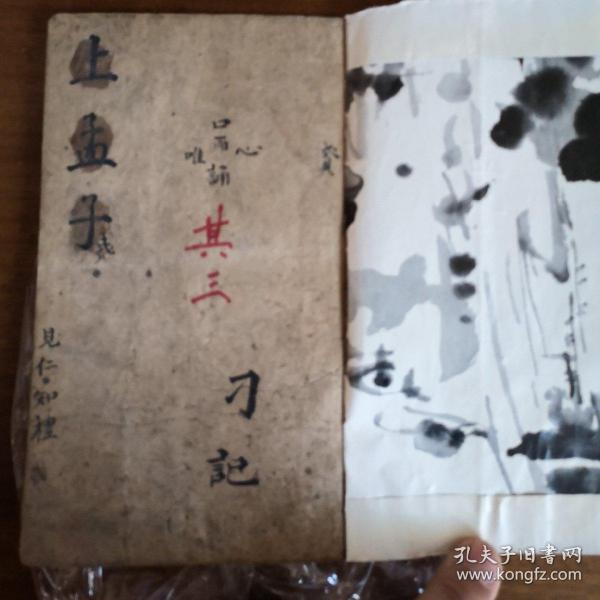 上孟子
見仁知禮
口
心
唯
誦
其三
刁記
孔夫子旧书网
www.kongfz.com